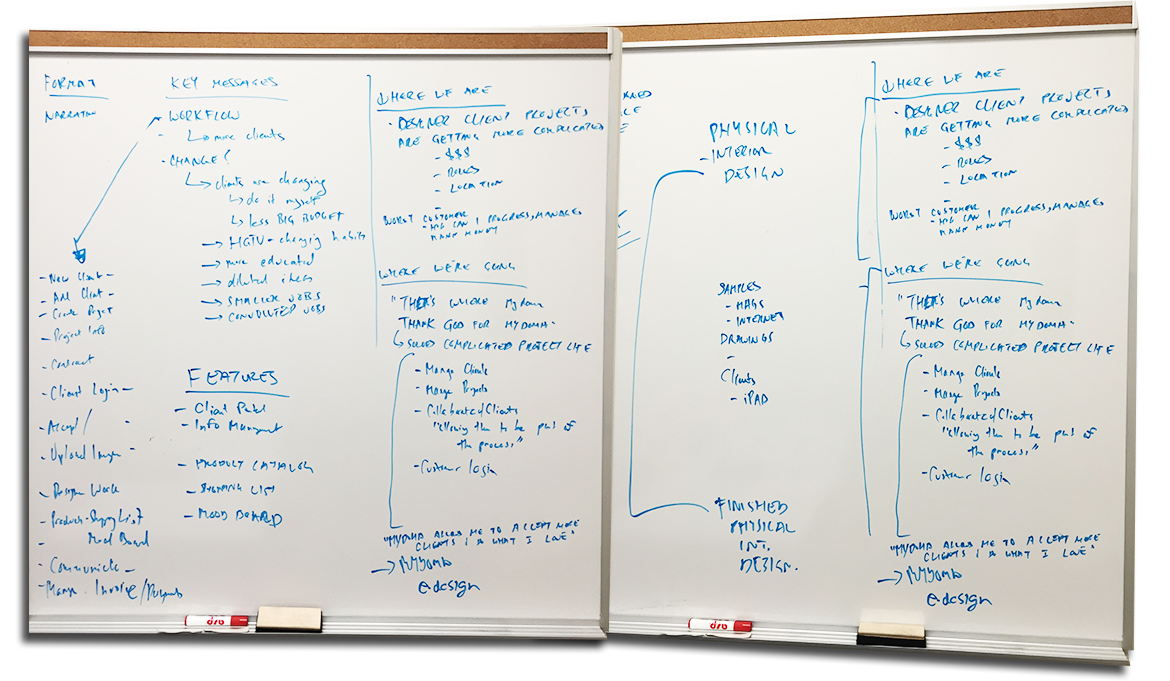 FORMAT
NARRATION
- New Client -
- Add Client -
- Create Project
- Project Info
- Contract
- Client Login -
- Accept /
- Upload Images -
- Design Work
- Product - Shopping List
Mood Board
- Communicate -
- Manage Invoice / Proposals
KEY MESSAGES
- WORKFLOW
↳ more clients
- CHANGE?
↳ clients are changing
↳ do it myself
↳ less BIG BUDGET
→ HGTV - changing habits
→ more educated
→ diluted ideas
→ SMALLER JOBS
→ CONVOLUTED JOBS
FEATURES
- Client Portal
- Info Managmt
- PRODUCT CATALOG
- SHOPPING LIST
- MOOD BOARD
WHERE WE ARE
- DESIGNER CLIENT PROJECTS
ARE GETTING MORE COMPLICATED
- $$$
- ROLES
- LOCATION
-
WORST CUSTOMER
- HOW CAN I PROGRESS, MANAGE
MAKE MONEY
WHERE WE'RE GOING
"THAT'S WHERE Mydoma
THANK GOD FOR MYDOMA -
↳ SOLVED COMPLICATED PROJECT LIFE
- Manage Clients
- Manage Projects
- Collaborate c/ Clients
"allowing them to be part of
the process."
- Customer login
"MYDOMA ALLOWS ME TO ACCEPT MORE
CLIENTS & DO WHAT I LOVE"
→ MYDOMA
e-design
PHYSICAL
- INTERIOR
DESIGN
SAMPLES
- MAGS
- INTERNET
DRAWINGS
-
Clients
- iPAD
FINISHED
PHYSICAL
INT.
DESIGN.
WHERE WE ARE
- DESIGNER CLIENT PROJECTS
ARE GETTING MORE COMPLICATED
- $$$
- ROLES
- LOCATION
-
WORST CUSTOMER
- HOW CAN I PROGRESS, MANAGE
MAKE MONEY
WHERE WE'RE GOING
"THAT'S WHERE Mydoma
THANK GOD FOR MYDOMA -
↳ SOLVED COMPLICATED PROJECT LIFE
- Manage Clients
- Manage Projects
- Collaborate c/ Clients
"allowing them to be part of
the process."
- Customer login
"MYDOMA ALLOWS ME TO ACCEPT MORE
CLIENTS & DO WHAT I LOVE"
→ MYDOMA
e-design